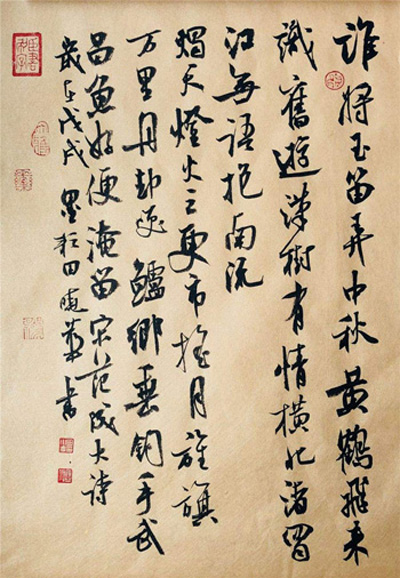 誰將玉笛弄中秋黃鶴飛来
識舊遊漢樹有情橫北渚蜀
江無語抱南流
燭天燈火三更市搖月旌旗
万里舟却笑鱸鄉垂釣手武
昌魚好便淹留宋范成大詩
歲在戊戌 墨 田曉 書